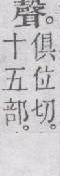 聲。
俱位切。
十五部。